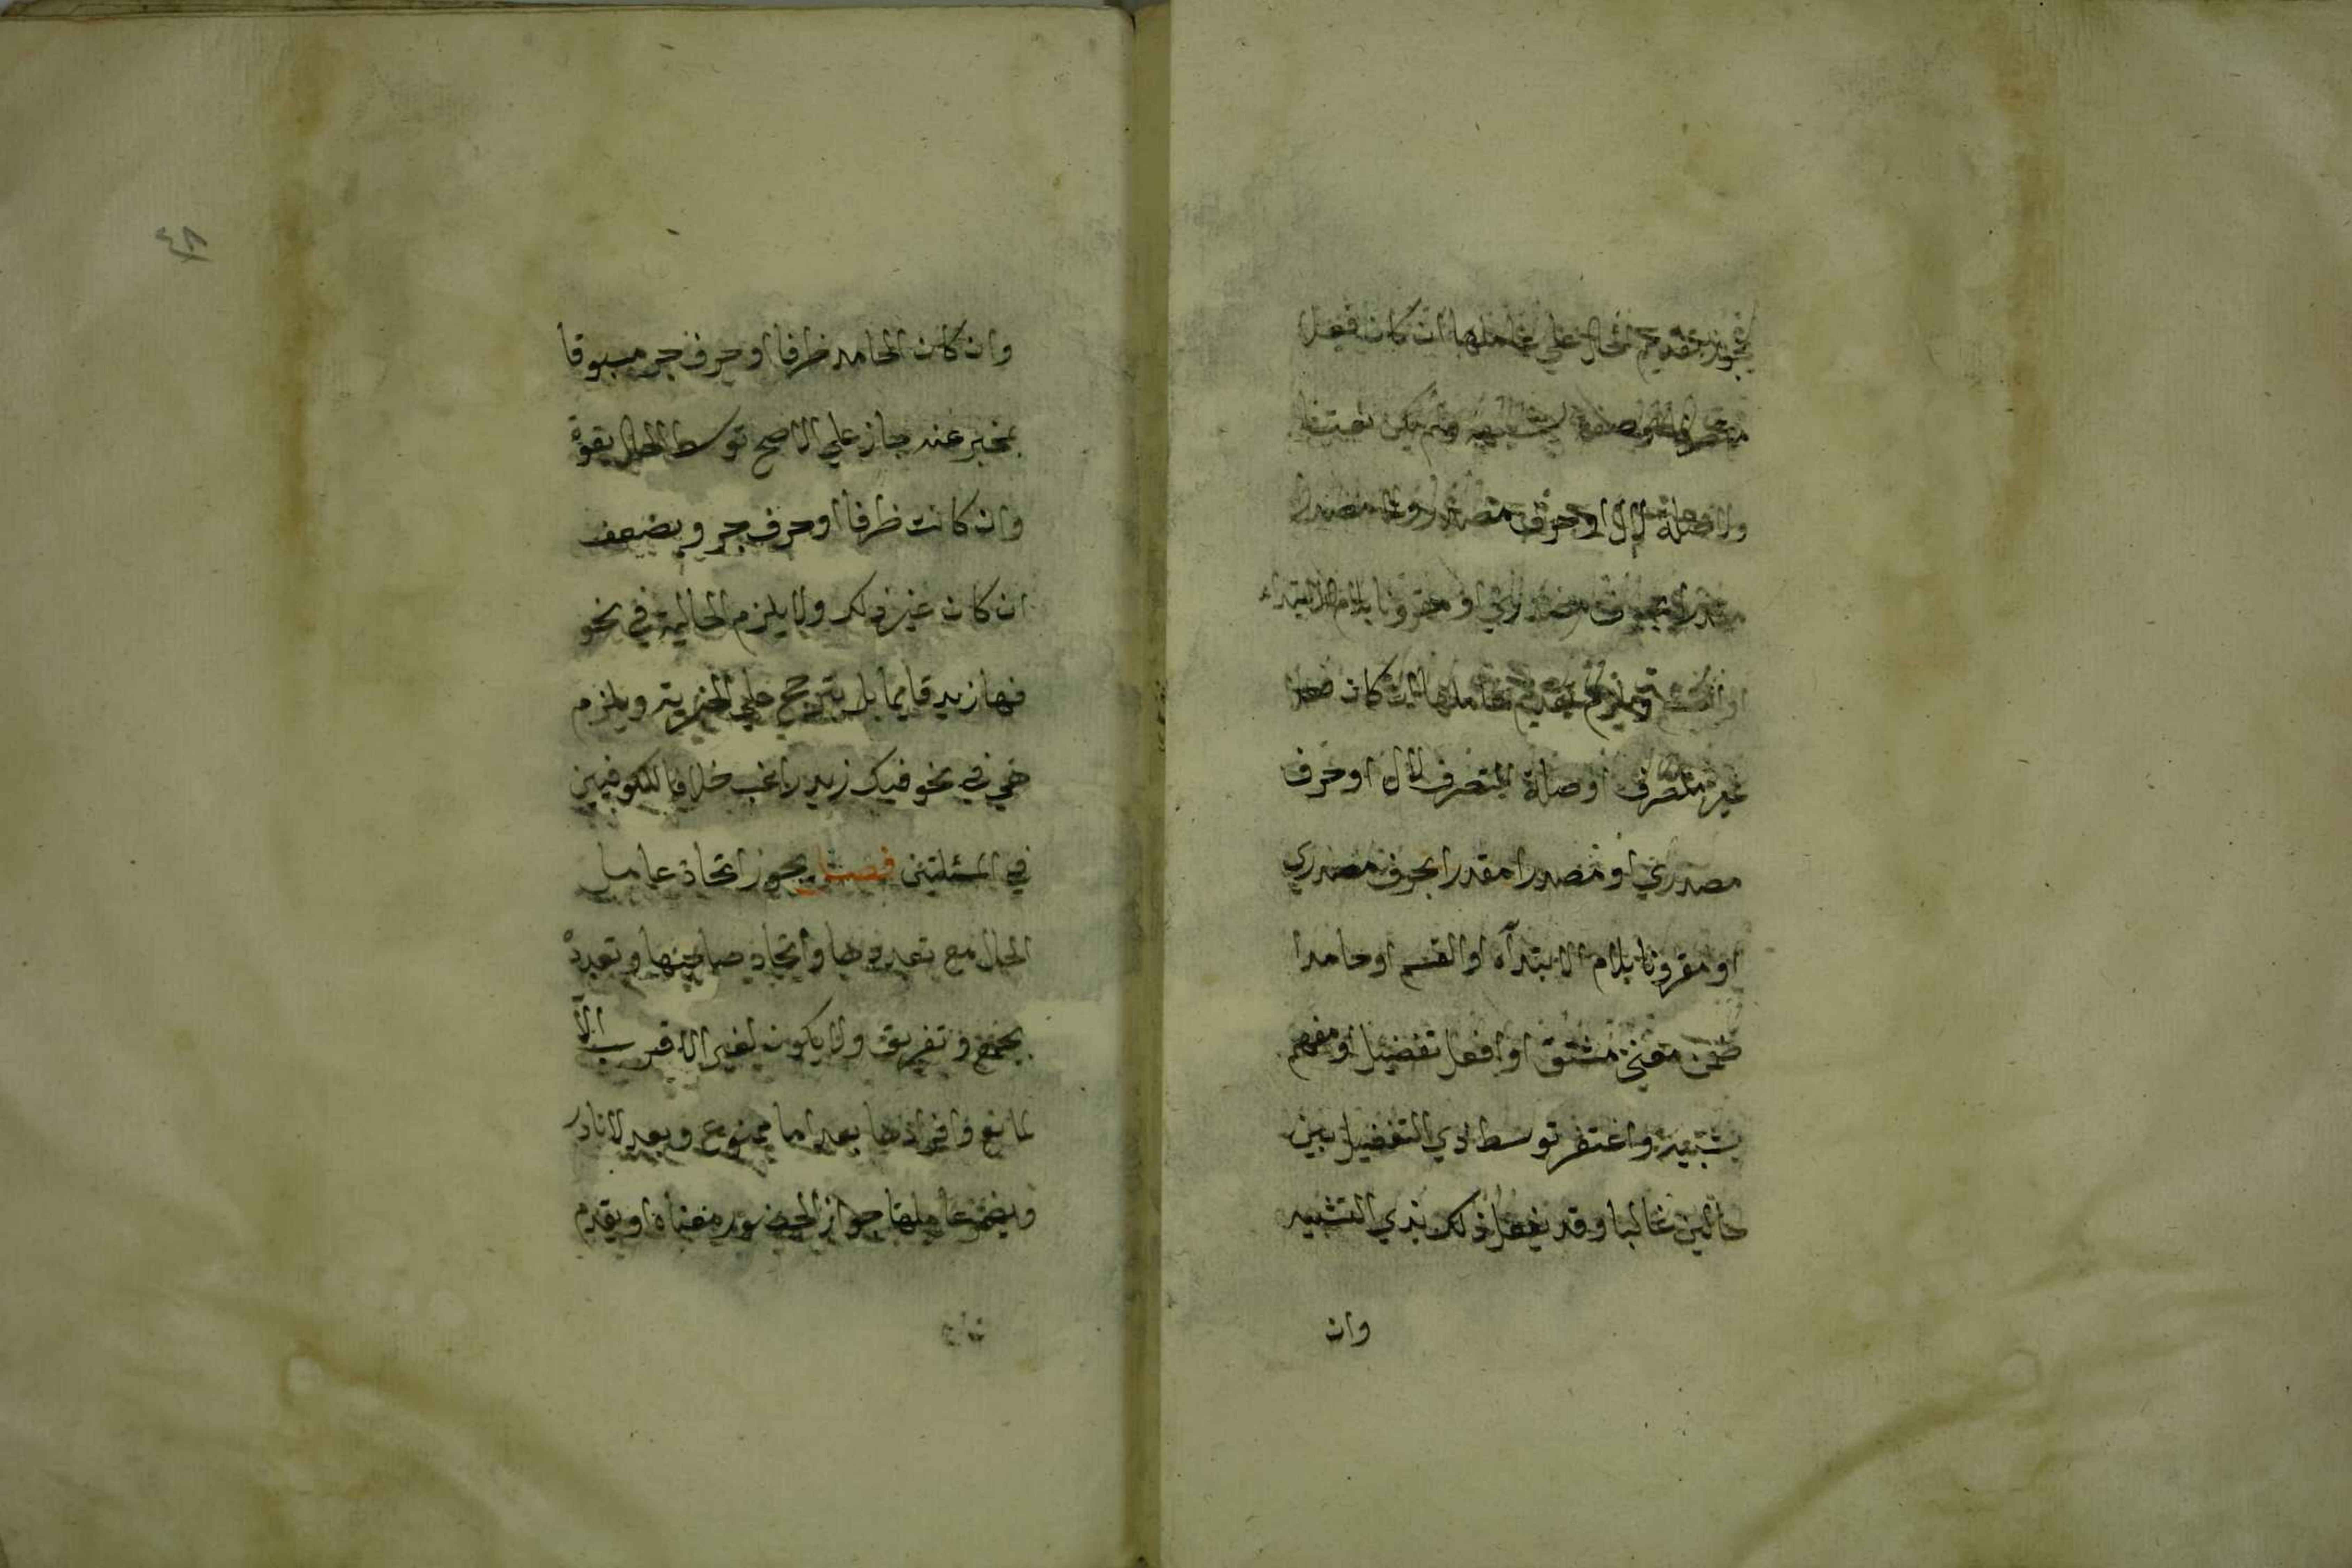 يجوز تقديم الحال على عاملها ان كان فعلا
متصرفا او صفة تشبهه ولم يكن نعتا
ولا صلة لال او حرف مصدري ولا مصدرا
مقدرا بحرف مصدري او مقرونا بلام الابتداء
او القسم ويلزم تقديم عاملها ان كان فعلا
غير متصرف او صلة المتصرف لال او حرف
مصدري او مصدرا مقدرا بحرف مصدري
او مقرونا بلام الابتدآء او القسم او جامدا
ضمن معنى مشتق او افعل تفضيل او مفهم
تشبيه واغتفر توسط ذي التفضيل بين
حالين غالبا وقد يفعل ذلك بذي التشبيه
وان
٤٨
وان كان الجامد ظرفا او حرف جر مسبوقا
بمخبر عنه جاز على الاصح توسط الحال بقوة
وان كانت ظرفا او حرف جر ويضعف
ان كان غير ذلك ولا يلزم الحالية في نحو
فيها زيد قايما بل يترجح على الخبرية ويلزم
هي في نحو فيك زيد راغب خلافا للكوفيين
في المسئلتين فصل يجوز اتحاد عامل
الحال مع تعددها واتحاد صاحبها وتعدده
بجمع وتفريق ولا يكون لغير الاقرب الا
لمانع وافرادها بعد اما ممنوع وبعد لا نادر
ويضمر عاملها جوازا لحضور معناه او تقدم